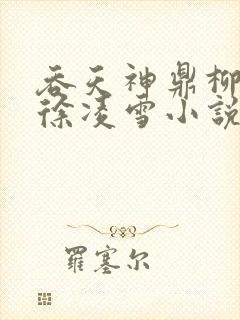 吞天神鼎柳
徐凌雪小說
羅塞尔